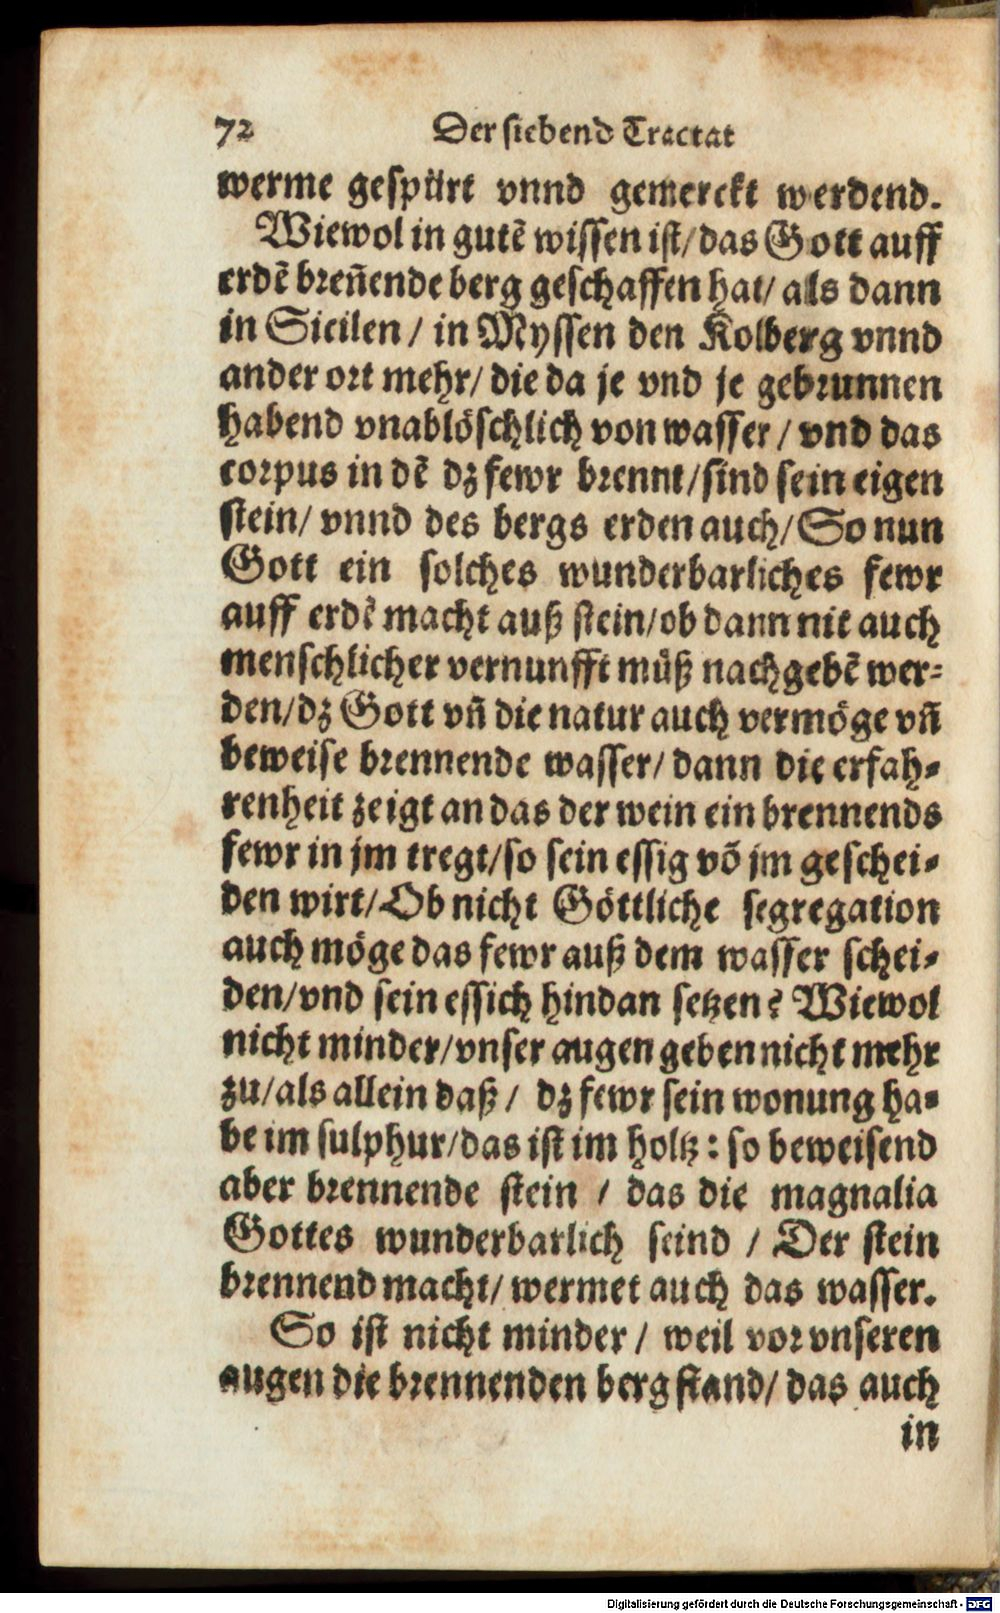 72 Der siebend Tractat
werme gespürt vnnd gemerckt werdend.
Wiewol in gutẽ wissen ist/das Gott auff
erdẽ breñende berg geschaffen hat/ als dann
in Sicilen / in Myssen den Kolberg vnnd
ander ort mehr/ die da je vnd je gebrunnen
habend vnablöschlich von wasser / vnd das
corpus in dẽ dz fewr brennt/sind sein eigen
stein/ vnnd des bergs erden auch/ So nun
Gott ein solches wunderbarliches fewr
auff erdẽ macht auß stein/ob dann nit auch
menschlicher vernunfft müß nachgebẽ wer-
den/dz Gott vñ die natur auch vermöge vñ
beweise brennende wasser/ dann die erfah-
renheit zeigt an das der wein ein brennends
fewr in jm tregt/so sein essig võ jm geschei-
den wirt/Ob nicht Göttliche segregation
auch möge das fewr auß dem wasser schei-
den/vnd sein essich hindan setzen? Wiewol
nicht minder/vnser augen geben nicht mehr
zu/als allein daß / dz fewr sein wonung ha-
be im sulphur/das ist im holtz: so beweisend
aber brennende stein / das die magnalia
Gottes wunderbarlich seind / Der stein
brennend macht/ wermet auch das wasser.
So ist nicht minder / weil vor vnseren
augen die brennenden berg stand/ das auch
in
Digitalisierung gefördert durch die Deutsche Forschungsgemeinschaft - DFG